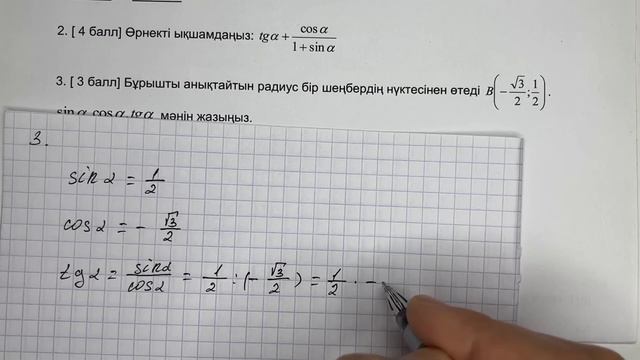 2. [ 4 балл] Өрнекті ықшамдаңыз: tgα + cosα/(1+sinα)
3. [ 3 балл] Бұрышты анықтайтын радиус бір шеңбердің нүктесінен өтеді B(-√3/2; 1/2).
sinα, cosα, tgα мәнін жазыңыз.
3.
sin α = 1/2
cos α = - √3/2
tg α = sinα/cosα = 1/2 : (- √3/2) = 1/2 · -